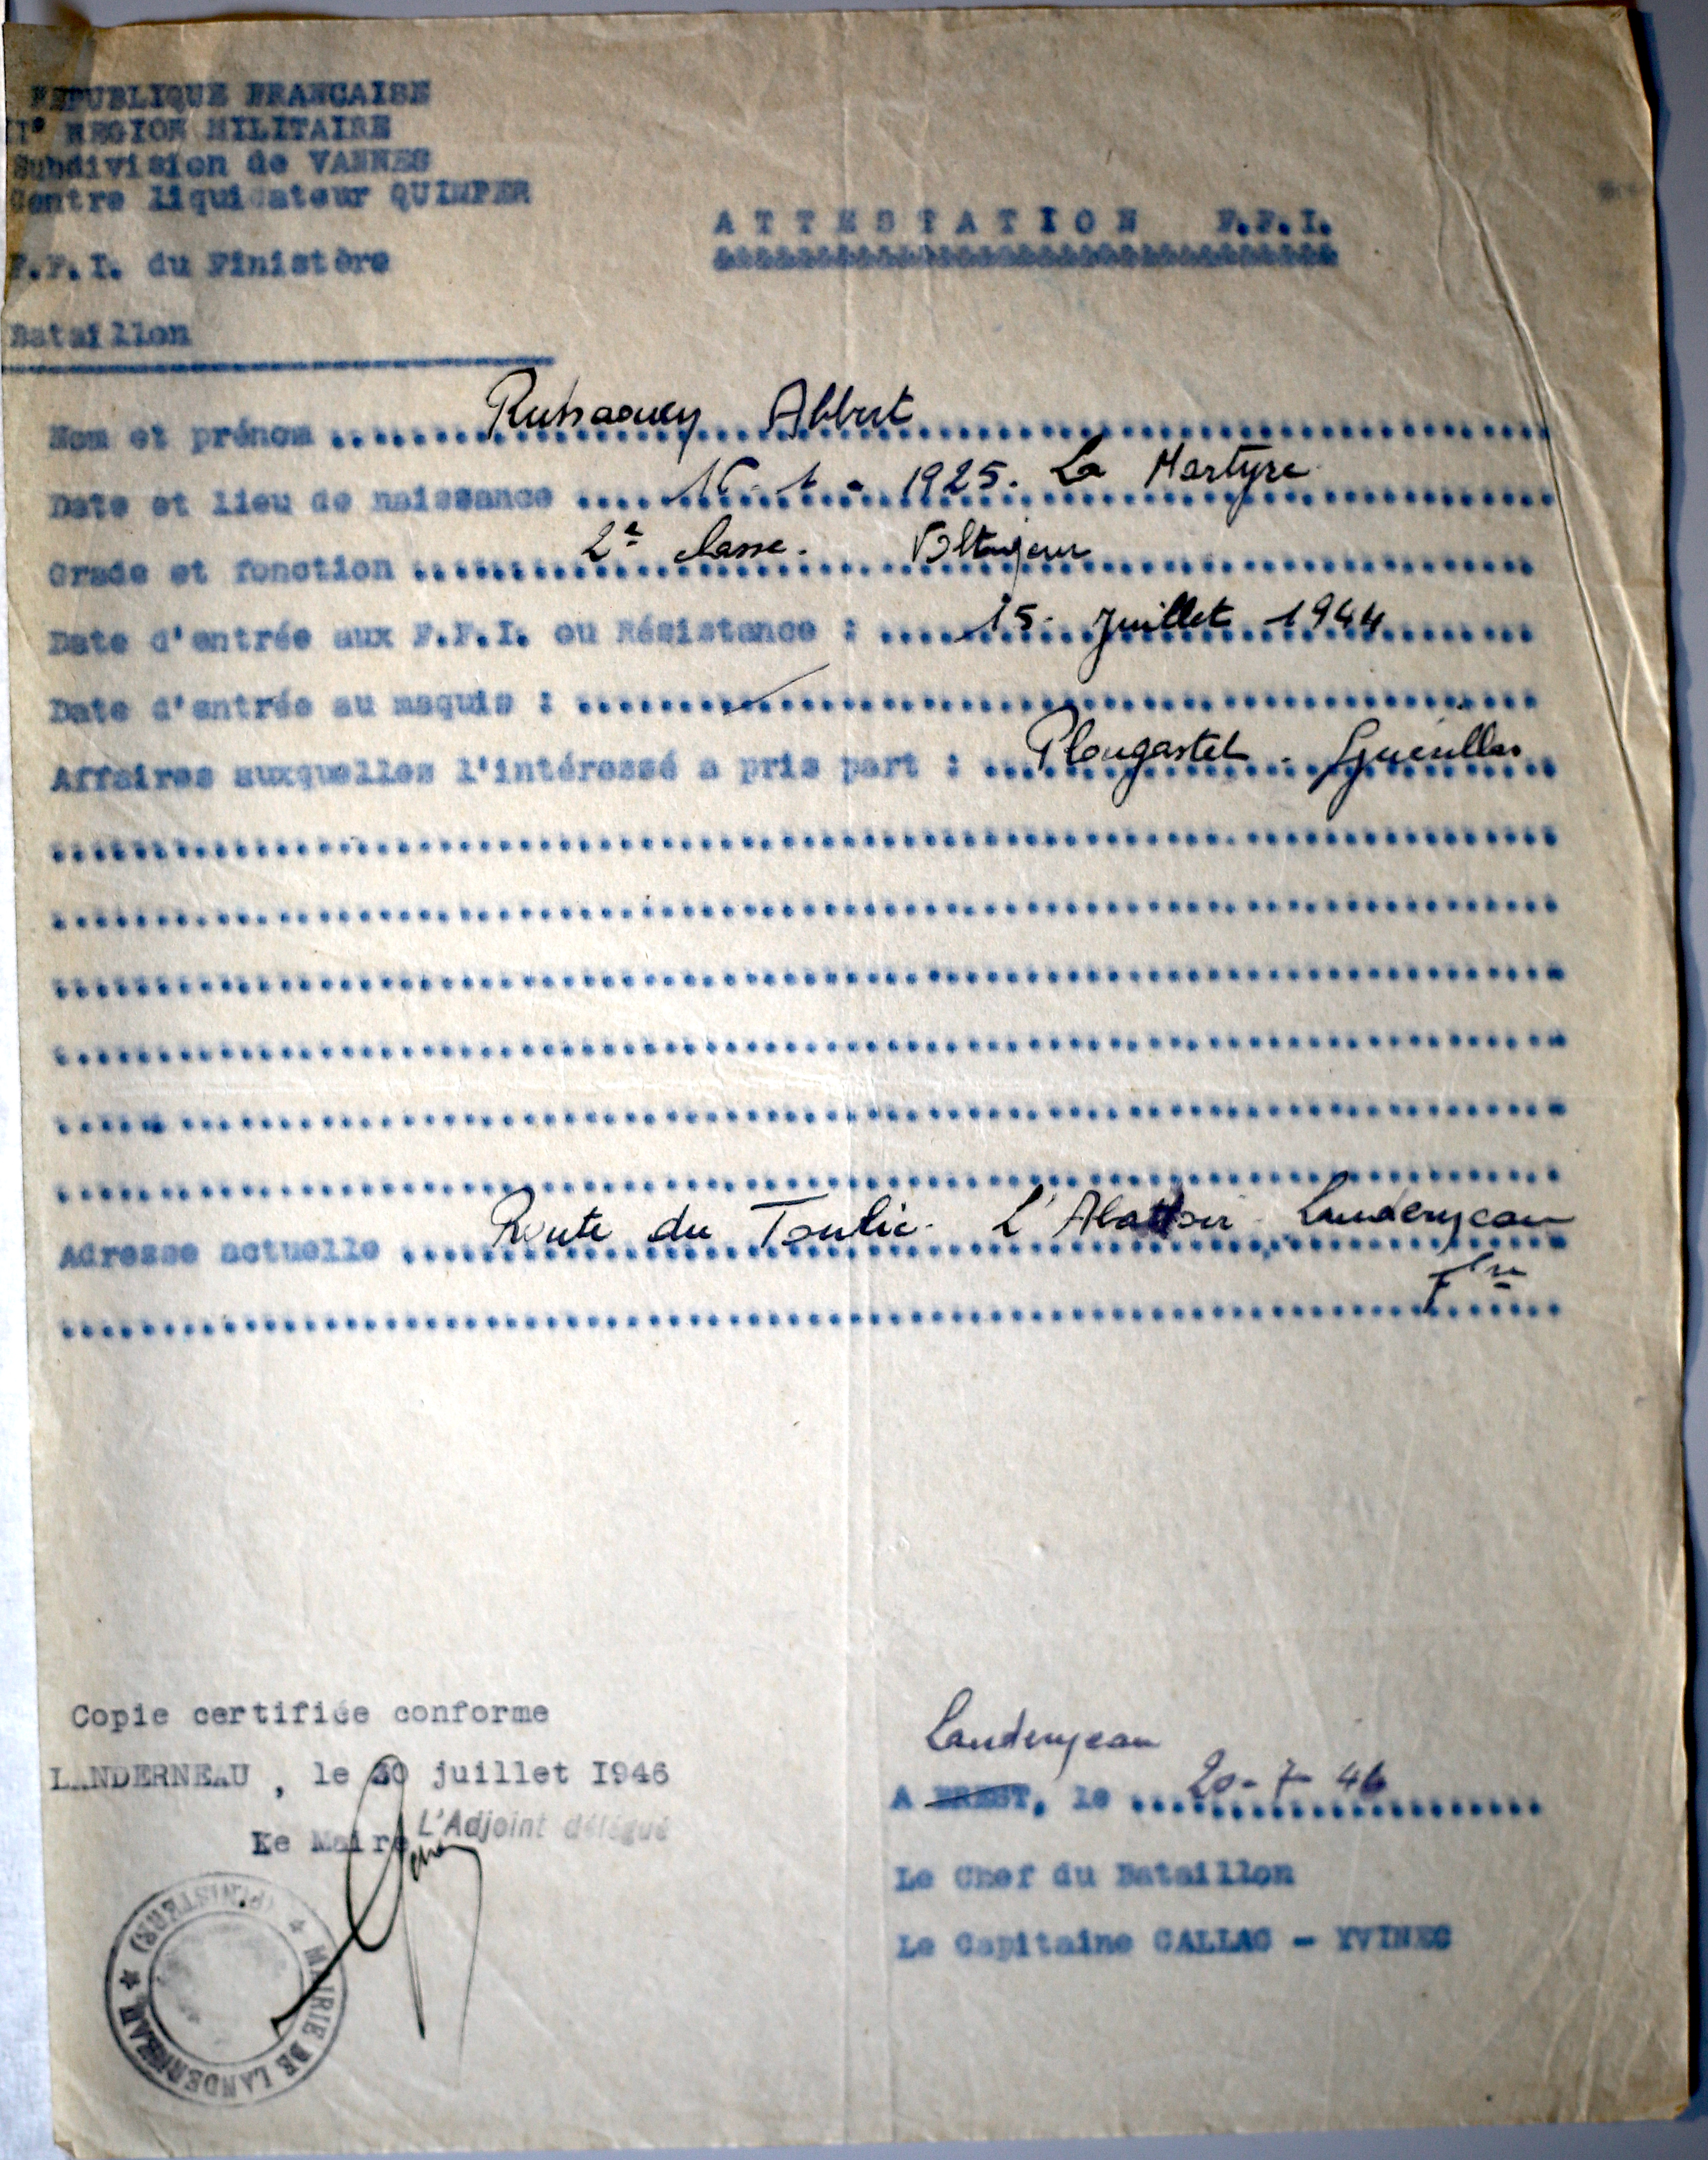 REPUBLIQUE FRANCAISE
II° REGION MILITAIRE
Subdivision de VANNES
Centre liquidateur QUIMPER
F.F.I. du Finistère
Bataillon
ATTESTATION F.F.I.
Nom et prénom Albert
Date et lieu de naissance 1925. La Martyre
Grade et fonction 2e classe. Voltigeur
Date d'entrée aux F.F.I. ou Résistance : 15. Juillet 1944
Date d'entrée au maquis :
Affaires auxquelles l'intéressé a pris part : Plougastel - Guérillas
Adresse actuelle Route du Toulic. L'Abattoir - Landerneau
Fre
Copie certifiée conforme
LANDERNEAU, le 30 juillet I946
Le Maire L'Adjoint délégué
MAIRIE DE LANDERNEAU * (FINISTERE) *
Landerneau
A BREST, le 20-7-46
Le Chef du Bataillon
Le Capitaine CALLAC - YVINEC